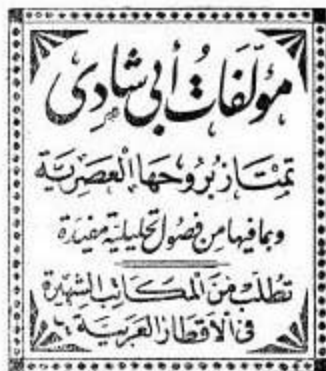 مؤلفات أبي شادي
تمتاز بروحها العصرية
وبما فيها من فصول تحليلية مفيدة
تطلب من المكاتب الشهيرة
في الاقطار العربية